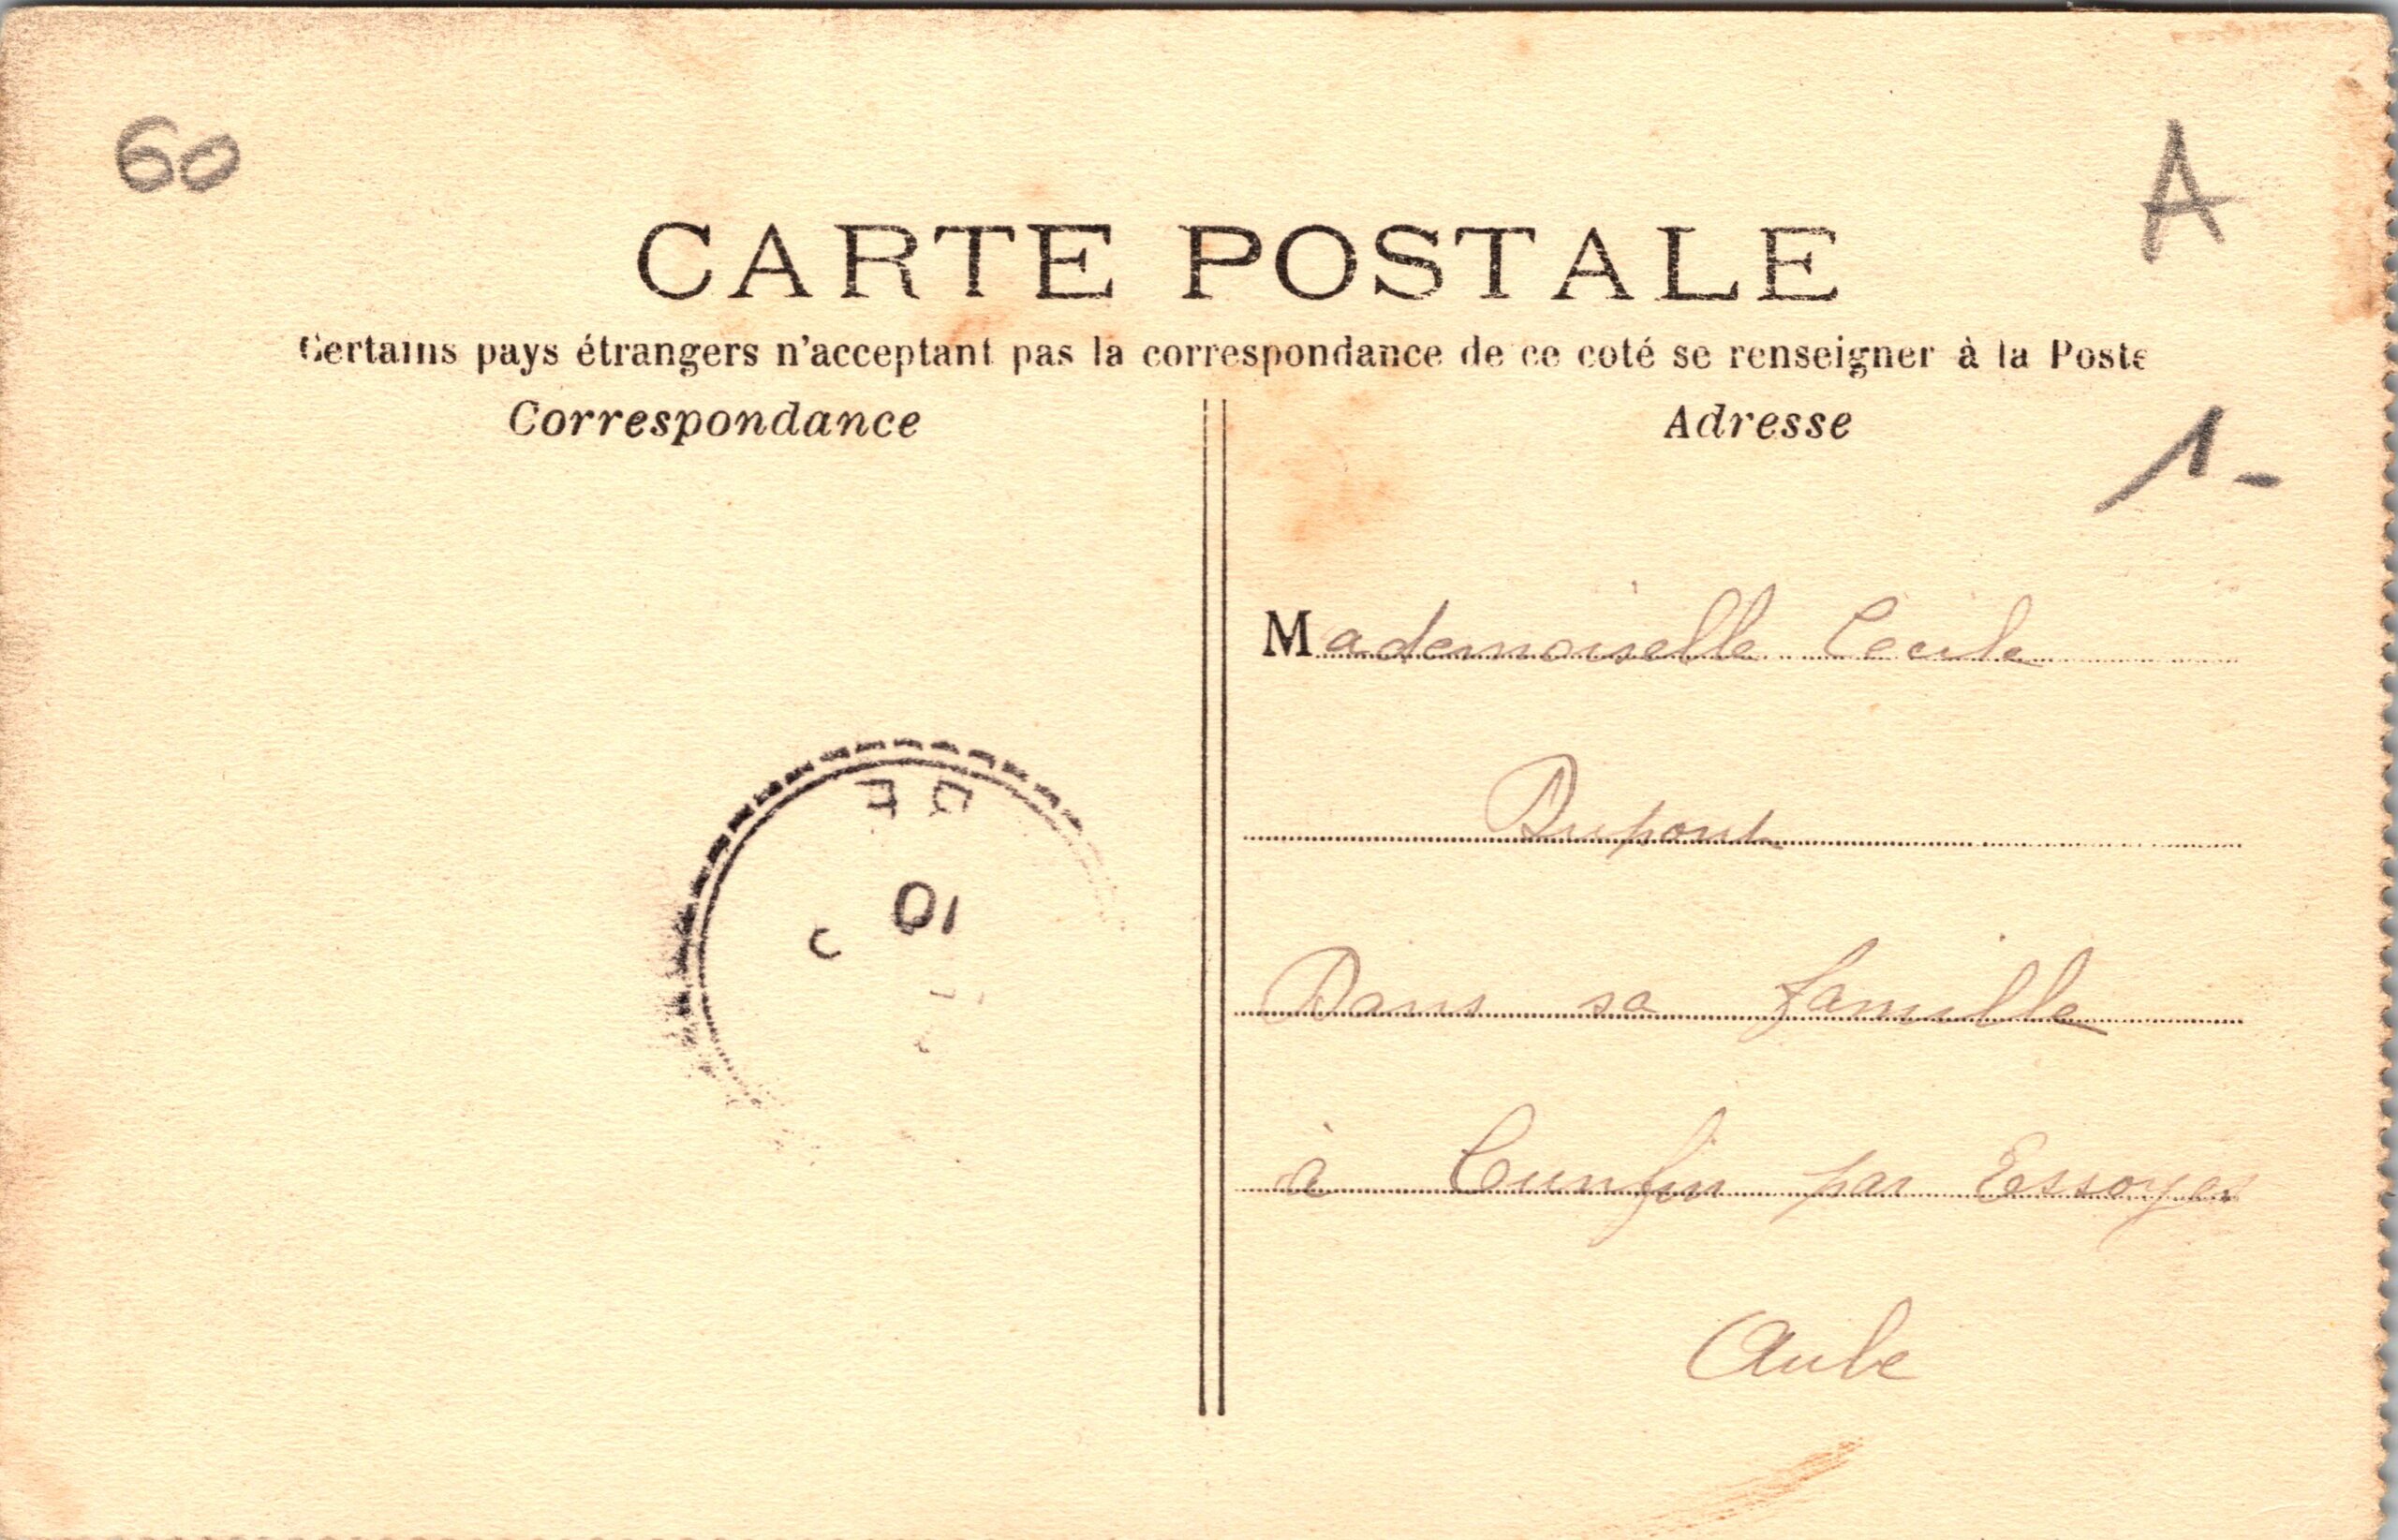 60
A
CARTE POSTALE
Certains pays étrangers n'acceptant pas la correspondance de ce coté se renseigner à la Poste
Correspondance
Adresse
1-
Mademoiselle Cecile
Dupont
Dans sa famille
à Cunfin par Essoyes
Aube
10